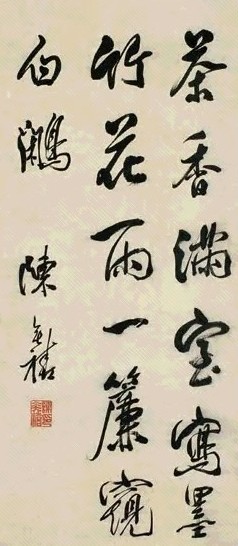 茶香滿室寫墨
竹花雨一簾窺
白鷴
陳奕禧